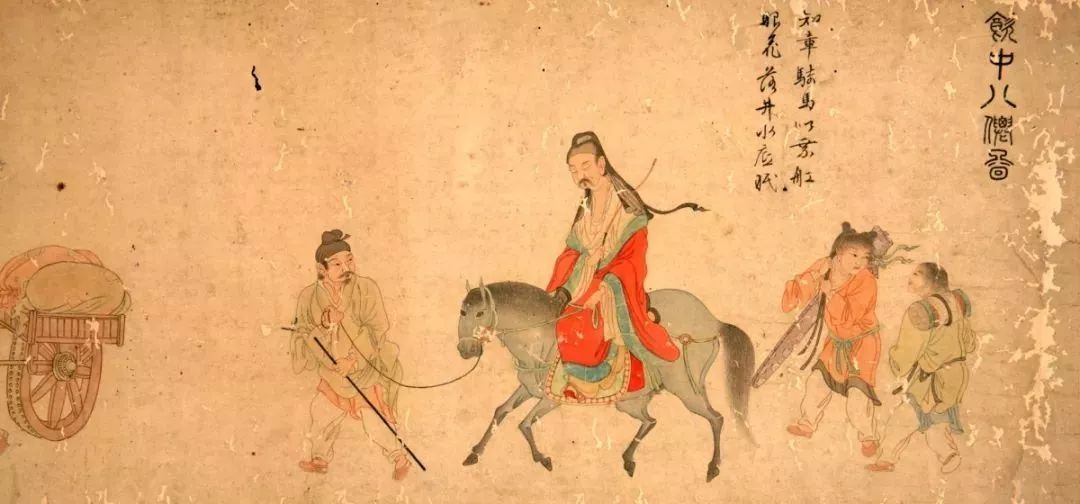 飲中八僊啚
知章騎馬似乘舡
眼花落井水底眠